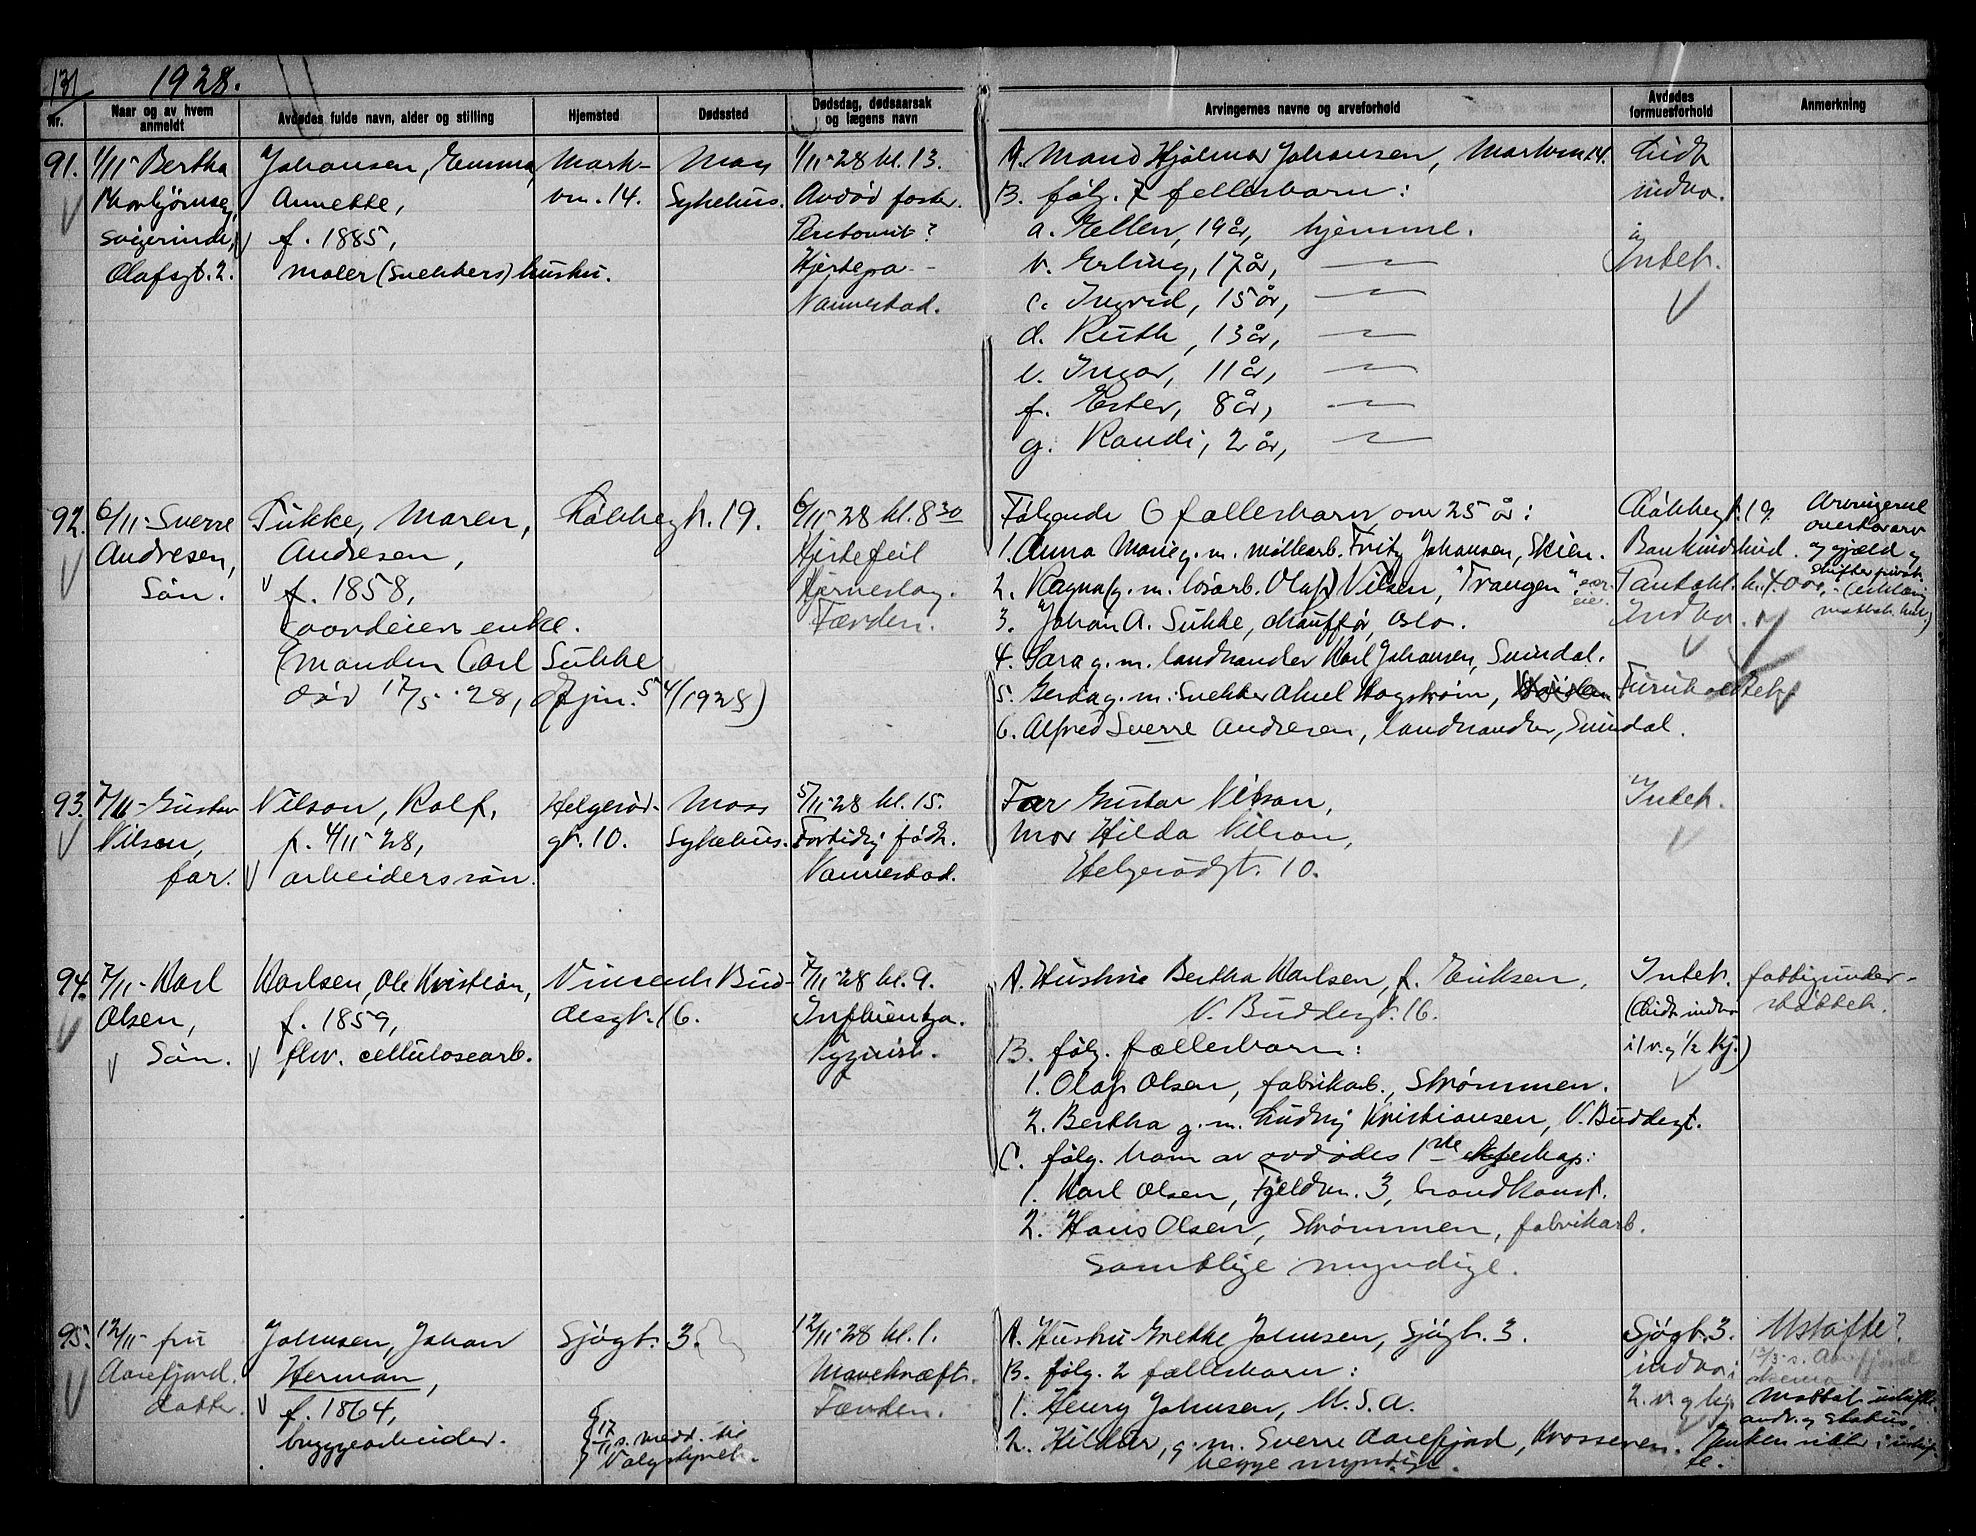 131
1928.
Nr.
Naar og av hvem anmeldt
Avdødes fulde navn, alder og stilling
Hjemsted
Dødssted
Dødsdag, dødsaarsak og lægens navn
Arvingernes navne og arveforhold
Avdødes formuesforhold
Anmerkning
91.
1/11- Bertha
Thorbjørnsen,
svigerinde,
Olafsgt. 2.
Johansen, Emma
Annette,
f. 1885,
maler (snekkers) hustru.
Mark-
vn. 14.
Moss
Sykehus.
1/11-28 kl. 13.
Avdød foster.
Peritonit?
Hjertepa-
Vannestad.
A. Mand Hjalmar Johansen, Markvn 14.
B. følg. 7 fellesbarn:
a. Ellen, 19 år, hjemme.
b. Erling, 17 år, —
c. Ingrid, 15 år, —
d. Ruth, 13 år, —
e. Ingar, 11 år, —
f. Ester, 8 år, —
g. Randi, 2 år, —
Lidt
indbo.
Intet.
92.
6/11- Sverre
Andresen,
Søn.
Sukke, Maren,
Andresen,
f. 1858,
Gaardeiers enke.
(manden Carl Sukke
død 17/5-28, Ejrn. 54/1928)
Løkkegt. 19.
6/11-28 kl. 8 30
Hjertefeil
Hjerneslag.
Færden.
Følgende 6 fællesbarn, over 25 år:
1. Anna Marie g. m. møllearb. Fritz Johansen, Skien.
2. Ragna g. m. løsarb. Olaf Nilsen, "Trangen",
3. Johan A. Sukke, chauffør, Oslo.
4. Sara g. m. landhandler Karl Johansen, Svindal.
5. Gerda g. m. snekker Aksel Hagstrøm,
6. Alfred Sverre Andresen, landhandler, Svindal.
Løkkegt. 19.
Bankindskud.
Pantobl. kr. 4000,-
Indbo.
Arvingerne
overtar arv
og gjæld og
skifter privat.
93.
7/11- Gustav
Nilson,
far.
Nilson, Rolf,
f. 4/11-28,
arbeiderssøn.
Helgerød-
gt. 10.
Moss
Sykehus.
5/11-28 kl. 15.
Fortidlig født.
Vannestad.
Far Gustav Nilson,
Mor Hilda Nilson,
Helgerødgt. 10.
Intet.
94.
7/11- Karl
Olsen,
Søn.
Karlsen, Ole Kristian,
f. 1859,
fhv. cellulosearb.
Vincents Bud-
desgt. 16.
7/11-28 kl. 9.
Influentza.
A. Hustru Bertha Karlsen, f. Eriksen,
V. Buddesgt. 16.
B. følg. fællesbarn:
1. Olaf Olsen, fabrikarb., Strømmen.
2. Bertha g. m. Ludvig Kristiansen, V. Buddesgt.
C. følg. barn av avdødes 1ste egteskap:
1. Karl Olsen, Fjeldvn. 3, brandkonst.
2. Hans Olsen, Strømmen, fabrikarb.
Samtlige myndige.
Intet.
(Lidt indbo
i 1 v. og 1/2 kj.)
fattigunder-
støttet.
95.
12/11- fru
Aarefjord.
datter.
Johnsen, Johan
Herman,
f. 1864,
byggearbeider.
Sjøgt. 3.
17/11 s. medd. til
Valgstyret.
12/11-28 kl. 1.
Mavekræft.
Færden.
A. Hustru Grethe Johnsen, Sjøgt. 3.
B. følg. 2 fællesbarn:
1. Henry Johnsen, U.S.A.
2. Hildur, g. m. Sverre Aarefjord, Krosseren.
begge myndige.
Sjøgt. 3.
indbo i
2 v. og kj.
Uskifte?
Enken sitter i uskif-
te.